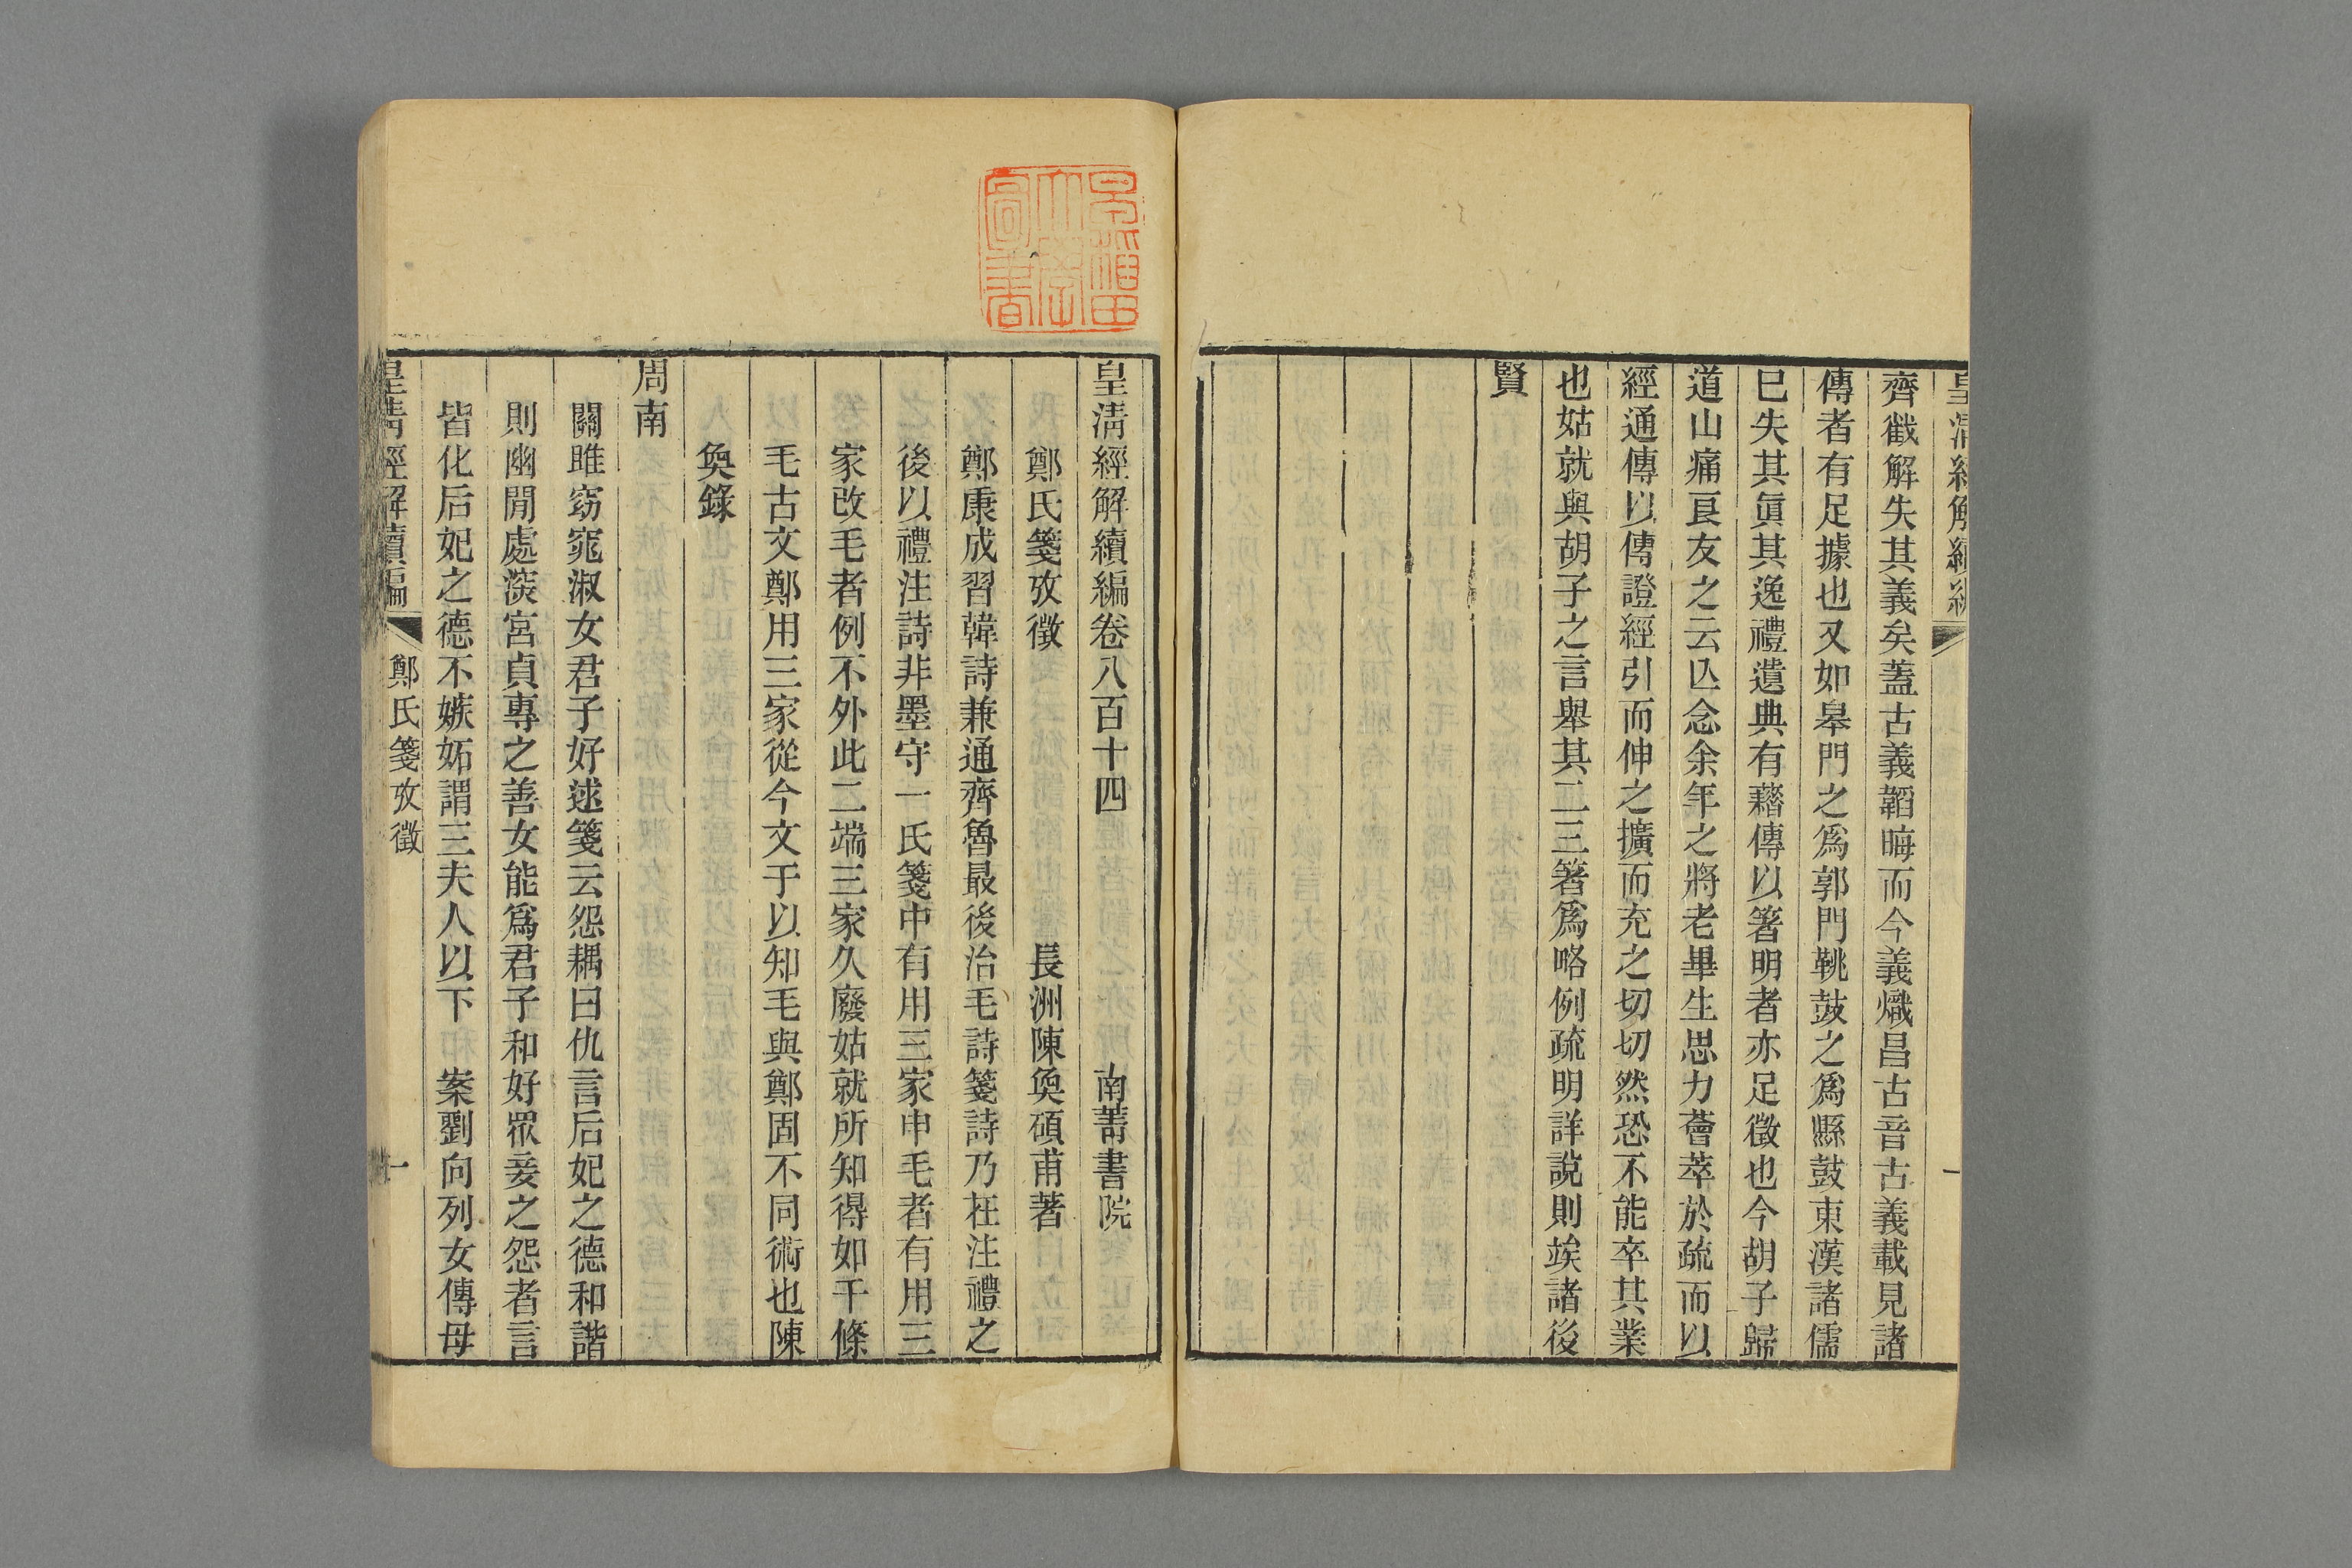 皇清經解續編
一
齊徵解失其義矣蓋古義韜晦而今義熾昌古音古義載見諸
傳者有足據也又如皋門之爲郭門鞉鼓之爲縣鼓東漢諸儒
已失其眞其逸禮遺典有藉傳以箸明者亦足徵也今胡子歸
道山痛良友之云亾念余年之將老畢生思力薈萃於疏而以
經通傳以傳證經引而伸之擴而充之切切然恐不能卒其業
也姑就與胡子之言舉其二三箸爲略例疏明詳說則竢諸後
賢
早稻田
大學
圖書
皇清經解續編卷八百十四
南菁書院
鄭氏箋攷徵
長洲陳奐碩甫著
鄭康成習韓詩兼通齊魯最後治毛詩箋詩乃在注禮之
後以禮注詩非墨守一氏箋中有用三家申毛者有用三
家改毛者例不外此二端三家久廢姑就所知得如干條
毛古文鄭用三家從今文于以知毛與鄭固不同術也陳
奐錄
周南
關雎窈窕淑女君子好逑箋云怨耦曰仇言后妃之德和諧
則幽閒處深宮貞專之善女能爲君子和好眾妾之怨者言
皆化后妃之德不嫉妬謂三夫人以下 案劉向列女傳母
皇清經解續編
鄭氏箋攷徵
一